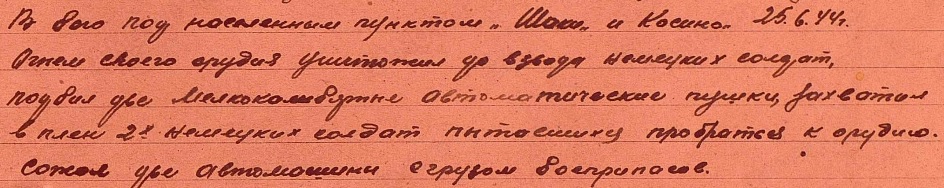 В бою под населенным пунктом „Шоки„ и Косино„ 25.6.44г.
Огнем своего орудия уничтожил до взвода немецких солдат,
подбил две мелкокалибртне автоматические пушки, захватил
в плен 2х немецких солдат пытавшихся пробратся к орудию.
Сожог две автомашини с грузом боеприпасов.